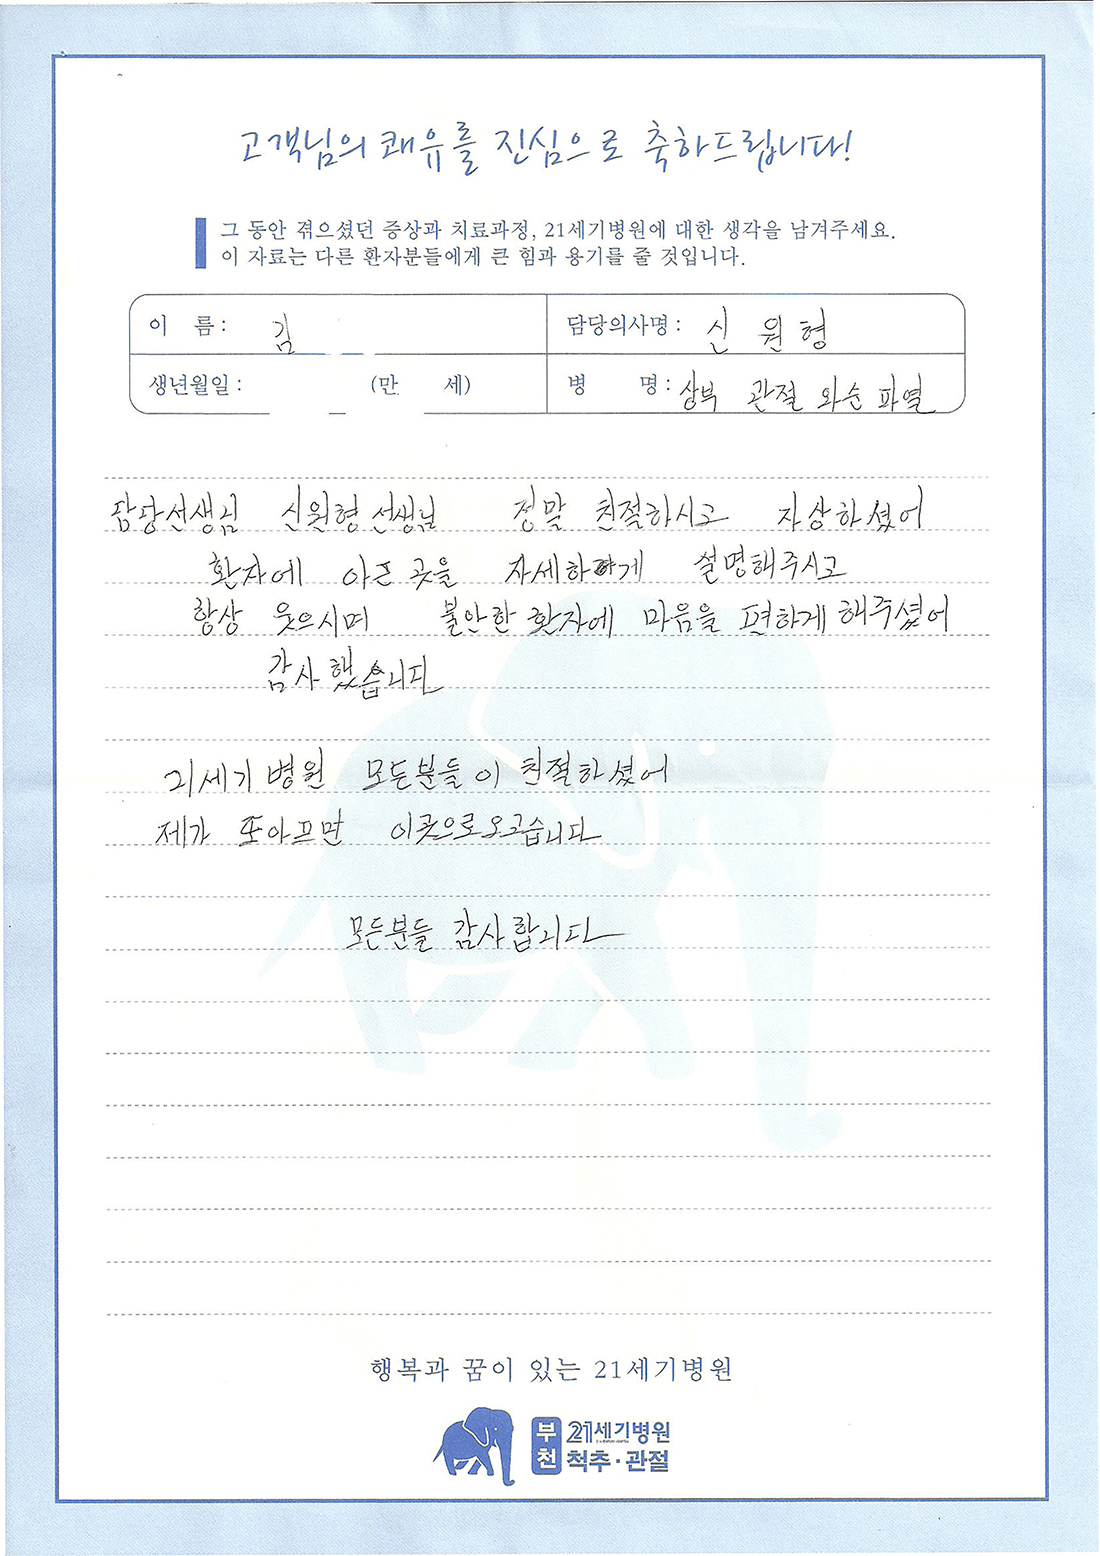 고객님의 쾌유를 진심으로 축하드립니다!
그 동안 겪으셨던 증상과 치료과정, 21세기병원에 대한 생각을 남겨주세요.
이 자료는 다른 환자분들에게 큰 힘과 용기를 줄 것입니다.
이 름 : 김
담당의사명 : 신 원 형
생년월일 : (만 세)
병 명 : 상부 관절 와순 파열
담당선생님 신원형 선생님 정말 친절하시고 자상하셨어
환자에 아픈 곳을 자세하게 설명해주시고
항상 웃으시며 불안한 환자에 마음을 편하게 해주셨어
감사했습니다
21세기 병원 모든분들이 친절하셨어
제가 또아프면 이곳으로오고습니다
모든분들 감사합니다
행복과 꿈이 있는 21세기병원
부천 21세기병원
척추·관절